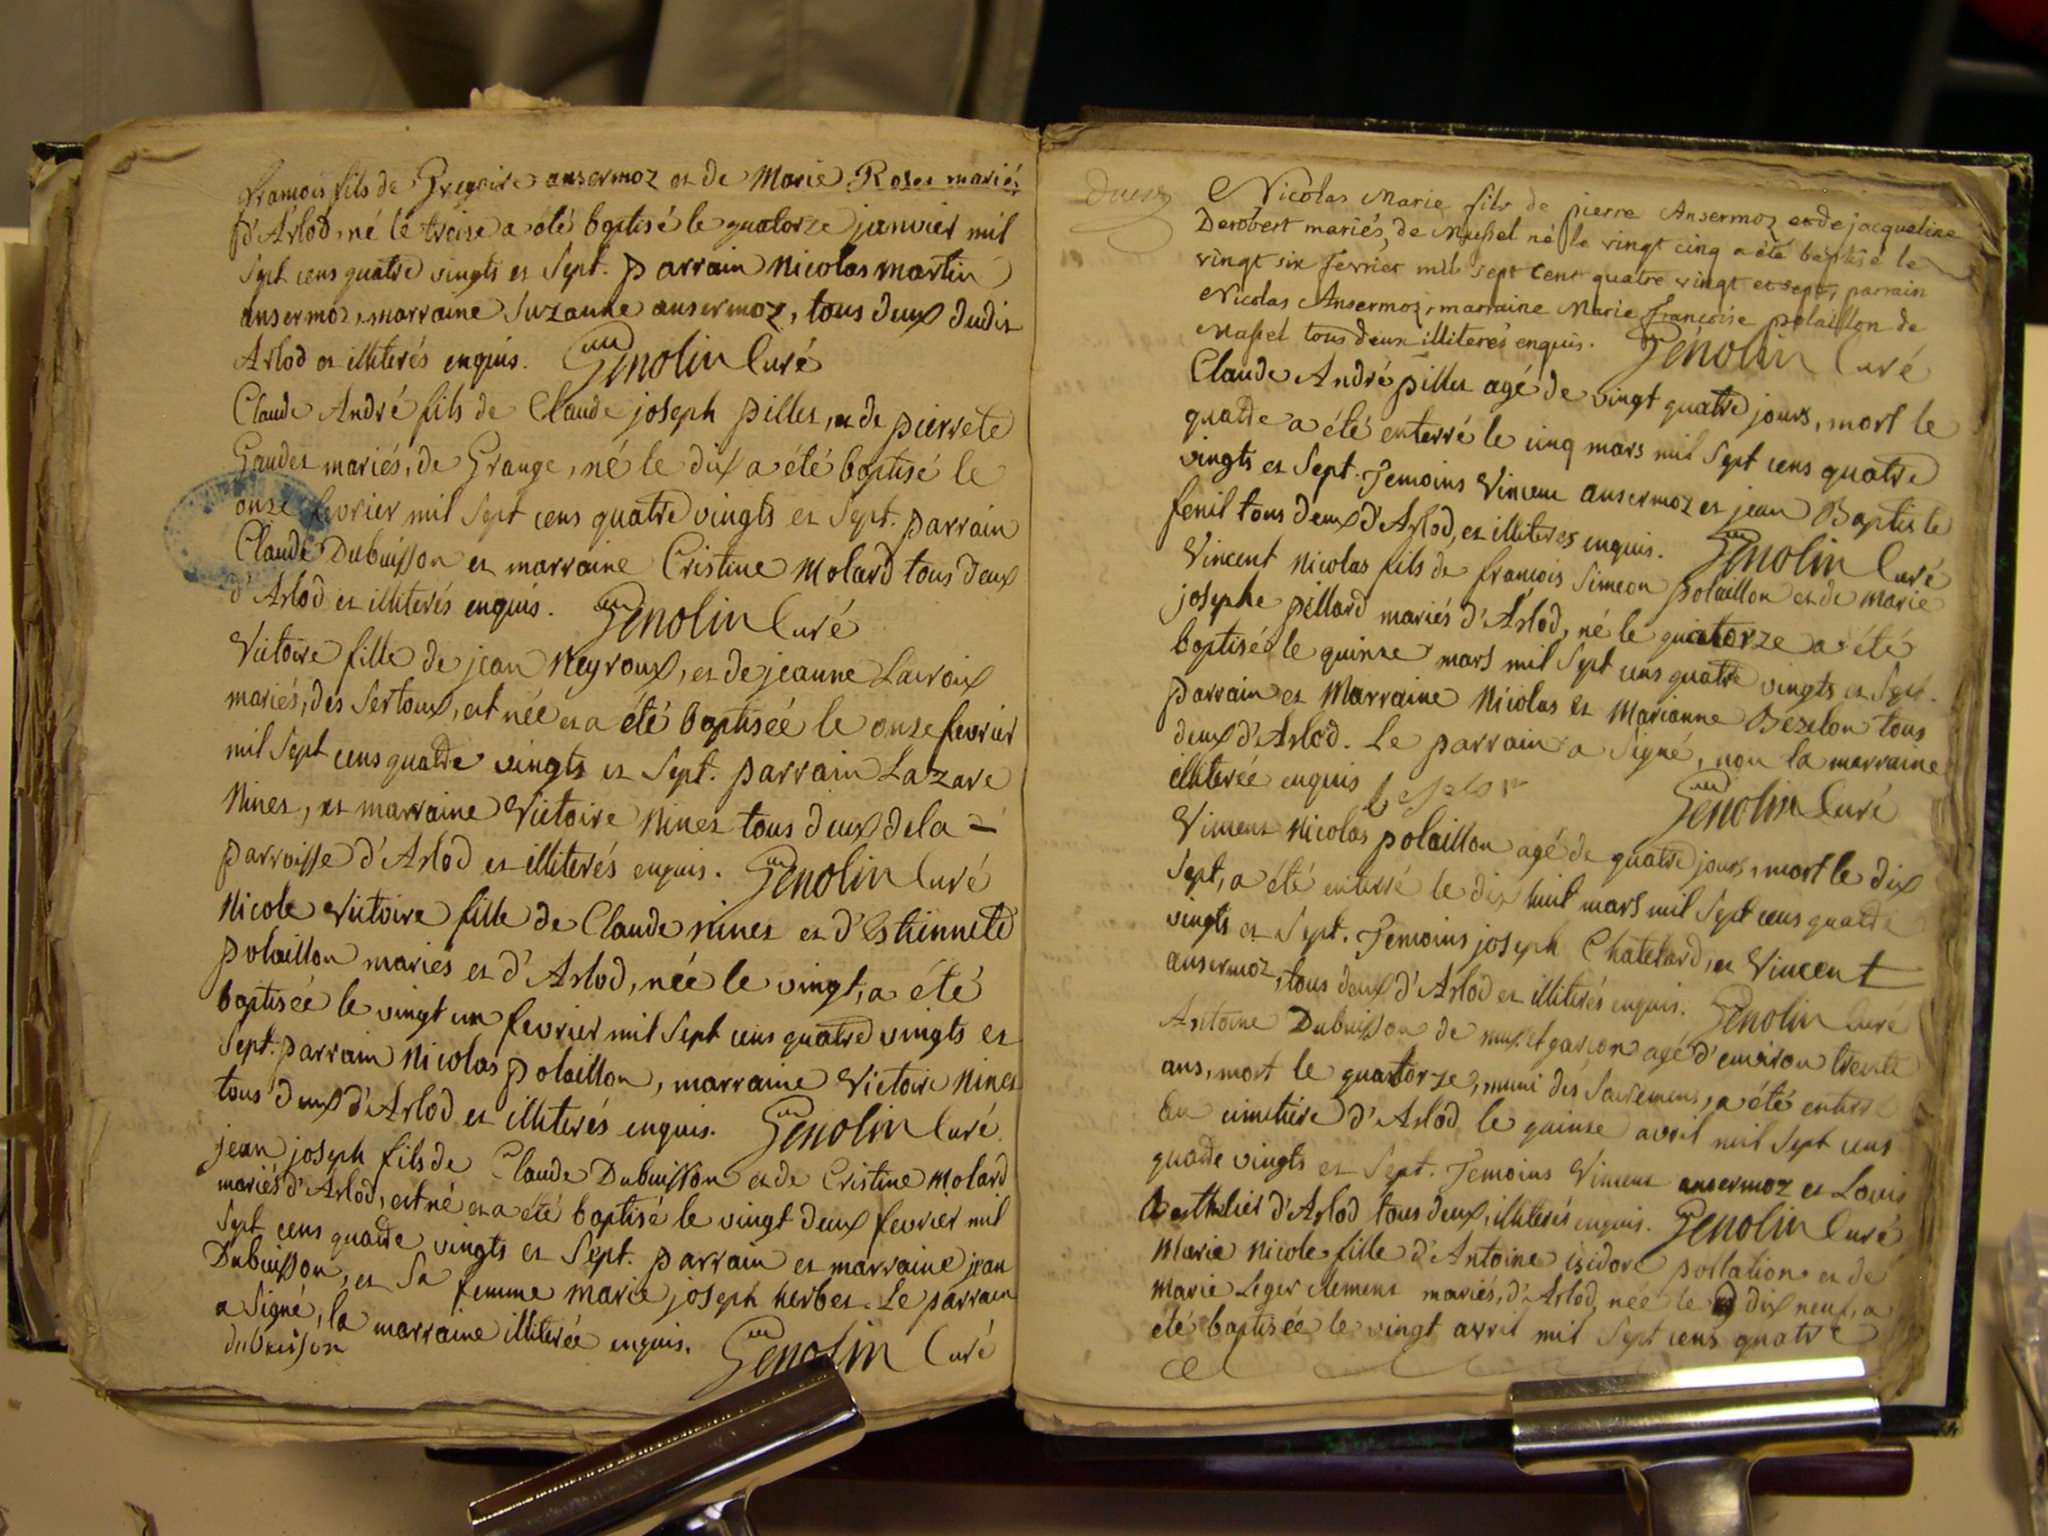 francois fils de Gregoire ansermoz et de Marie Roses mariés
d'Arlod, né le treize a été baptisé le quatorze janvier mil
Sept cens quatre vingts et Sept. parrain Nicolas martin
ansermoz, marraine Suzanne ansermoz, tous deux dudit
Arlod et illiterés enquis. Genolin Curé
Claude André fils de Claude joseph pillet, et de pierrete
Gaudet mariés, de Grange, né le dix a été baptisé le
onze fevrier mil Sept cens quatre vingts et Sept. parrain
Claude Dubuisson et marraine Cristine Molard tous deux
d'Arlod et illiterés enquis. Genolin Curé
Victoire fille de jean Neyroux, et de jeanne Lacroix
mariés, des Sertoux, est née et a été baptisée le onze fevrier
mil Sept cens quatre vingts et Sept. parrain Lazare
Ninet, et marraine Victoire Ninet tous deux de la
parroisse d'Arlod et illiterés enquis. Genolin Curé
Nicole Victoire fille de Claude ninet et d'Estiennete
polaillon mariés et d'Arlod, née le vingt, a été
baptisée le vingt un fevrier mil Sept cens quatre vingts et
Sept. parrain Nicolas polaillon, marraine Victoire Ninet
tous deux d'Arlod et illiterés enquis. Genolin Curé
jean joseph fils de Claude Dubuisson et de Cristine Molard
mariés d'Arlod, est né et a été baptisé le vingt deux fevrier mil
Sept cens quatre vingts et Sept. parrain et marraine jean
Dubuisson, et Sa femme marie joseph herbet. Le parrain
a Signé, la marraine illiterée enquis. Genolin Curé
dubuisson
Nicolas Marie fils de pierre Ansermoz et de jacqueline
Derobert mariés, de Mussel né le vingt cinq a été baptisé le
vingt six fevrier mil sept cent quatre vingt et sept, parrain
Nicolas Ansermoz, marraine Marie francoise polaillon de
Mussel tous deux illiterés enquis. Genolin Curé
Claude André pillet agé de vingt quatre jours, mort le
quatre a été enterré le cinq mars mil Sept cens quatre
vingts et Sept. Temoins Vincent ansermoz et jean Baptiste
fenil tous deux d'Arlod, et illiterés enquis. Genolin Curé
Vincent Nicolas fils de francois Simeon polaillon et de Marie
josephe pillard mariés d'Arlod, né le quatorze a été
baptisé le quinze mars mil Sept cens quatre vingts et Sept.
parrain et Marraine Nicolas et Marianne Bezelon tous
deux d'Arlod. Le parrain a Signé, non la marraine
illiterée enquis Genolin Curé
Vincent Nicolas polaillon agé de quatre jours, mort le dix
Sept, a été enterré le dix huit mars mil Sept cens quatre
vingts et Sept. Temoins joseph Chatelard, et Vincent
ansermoz, tous deux d'Arlod et illiterés enquis. Genolin Curé
Antoine Dubuisson de mussel garcon agé d'environ trente
ans, mort le quatorze, muni des Sacremens, a été enterré
au cimetiere d'Arlod le quinze avril mil Sept cens
quatre vingts et Sept. Temoins Vincent ansermoz et Louis
Berthelier d'Arlod tous deux illiterés enquis. Genolin Curé
Marie Nicole fille d'Antoine isidore et de
Marie Leger Clement mariés, d'Arlod, née le dix neuf, a
été baptisée le vingt avril mil Sept cens quatre